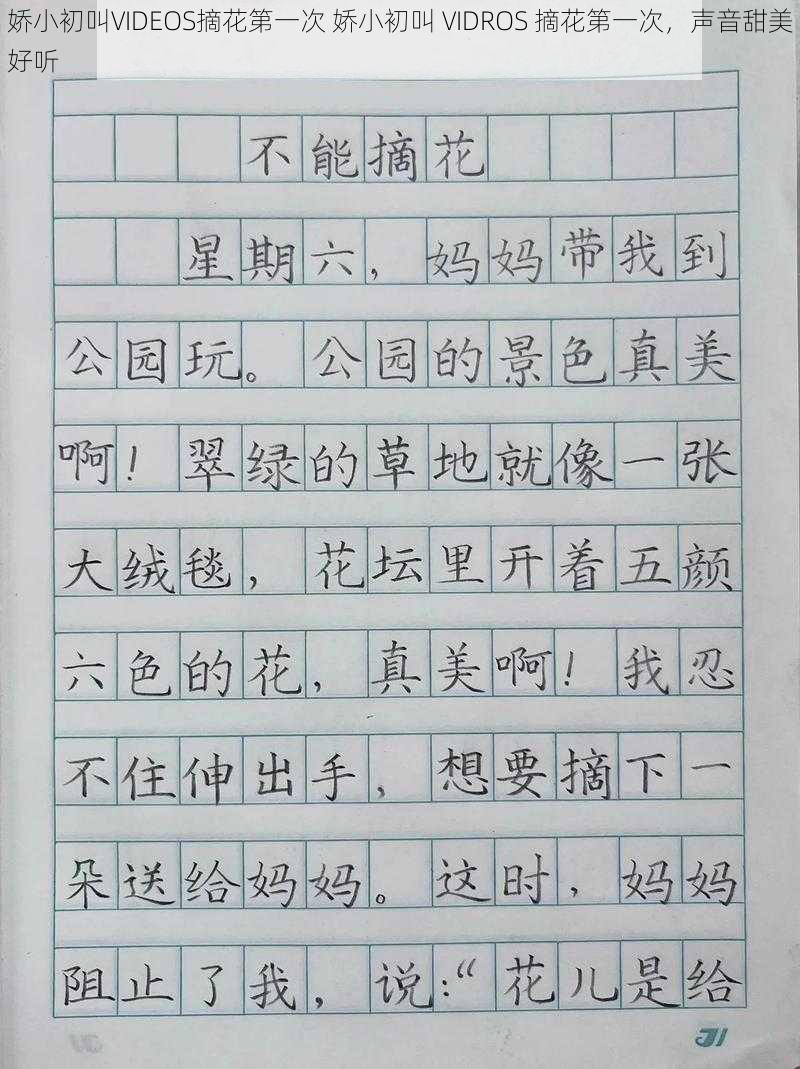 娇小初叫VIDEOS摘花第一次 娇小初叫 VIDROS 摘花第一次，声音甜美
好听
不能摘花
星期六，妈妈带我到
公园玩。公园的景色真美
啊！翠绿的草地就像一张
大绒毯，花坛里开着五颜
六色的花，真美啊！我忍
不住伸出手，想要摘下一
朵送给妈妈。这时，妈妈
阻止了我，说：“花儿是给